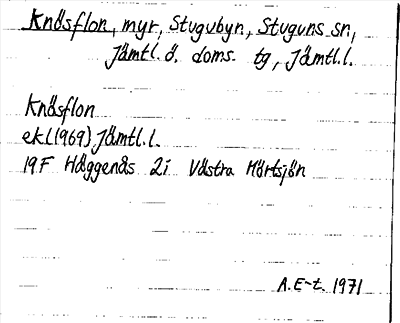 Knösflon, myr, Stugubyn, Stuguns sn,
Jämtl. ö. doms. tg, Jämtl. l.
Knösflon
ek. (1969) Jämtl. l.
19F Häggenås 2i Västra Mörtsjön
A. E-t. 1971